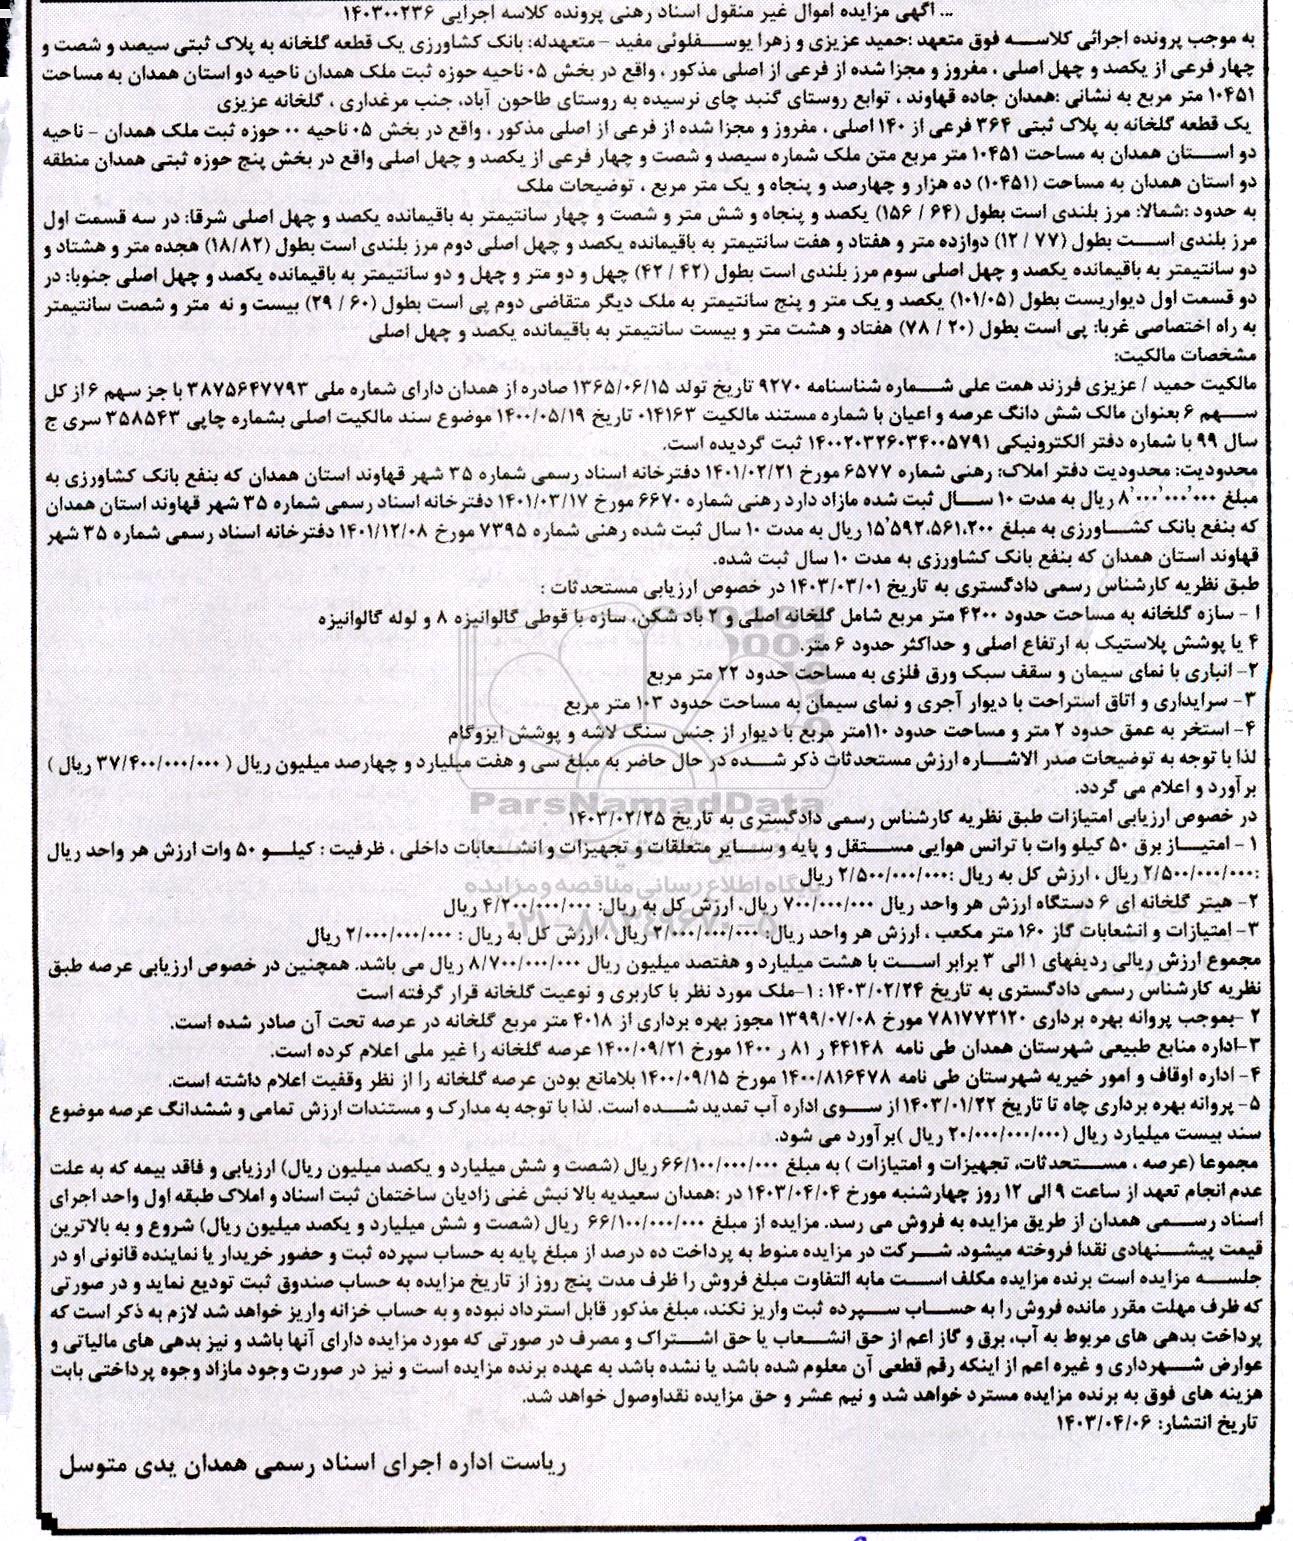 ... آگهی مزایده اموال غیر منقول اسناد رهنی پرونده کلاسه اجرایی ۱۴۰۳۰۰۲۳۶
به موجب پرونده اجرائی کلاسه فوق متعهد :حمید عزیزی و زهرا یوسفلوئی مفید – متعهدله: بانک کشاورزی یک قطعه گلخانه به پلاک ثبتی سیصد و شصت و
چهار فرعی از یکصد و چهل اصلی ، مفروز و مجزا شده از فرعی از اصلی مذکور ، واقع در بخش ۰۵ ناحیه حوزه ثبت ملک همدان ناحیه دو استان همدان به مساحت
۱۰۴۵۱ متر مربع به نشانی :همدان جاده قهاوند ، توابع روستای گنبد چای نرسیده به روستای طاحون آباد، جنب مرغداری ، گلخانه عزیزی
یک قطعه گلخانه به پلاک ثبتی ۳۶۴ فرعی از ۱۴۰ اصلی ، مفروز و مجزا شده از فرعی از اصلی مذکور ، واقع در بخش ۰۵ ناحیه ۰۰ حوزه ثبت ملک همدان – ناحیه
دو استان همدان به مساحت ۱۰۴۵۱ متر مربع متن ملک شماره سیصد و شصت و چهار فرعی از یکصد و چهل اصلی واقع در بخش پنج حوزه ثبتی همدان منطقه
دو استان همدان به مساحت (۱۰۴۵۱) ده هزار و چهارصد و پنجاه و یک متر مربع ، توضیحات ملک
به حدود :شمالا: مرز بلندی است بطول (۶۴ / ۱۵۶) یکصد و پنجاه و شش متر و شصت و چهار سانتیمتر به باقیمانده یکصد و چهل اصلی شرقا: در سه قسمت اول
مرز بلندی است بطول (۷۷ / ۱۲) دوازده متر و هفتاد و هفت سانتیمتر به باقیمانده یکصد و چهل اصلی دوم مرز بلندی است بطول (۱۸/۸۲) هجده متر و هشتاد و
دو سانتیمتر به باقیمانده یکصد و چهل اصلی سوم مرز بلندی است بطول (۴۲ / ۴۲) چهل و دو متر و چهل و دو سانتیمتر به باقیمانده یکصد و چهل اصلی جنوبا: در
دو قسمت اول دیواریست بطول (۱۰۱/۰۵) یکصد و یک متر و پنج سانتیمتر به ملک دیگر متقاضی دوم پی است بطول (۶۰ / ۲۹) بیست و نه متر و شصت سانتیمتر
به راه اختصاصی غربا: پی است بطول (۲۰ / ۷۸) هفتاد و هشت متر و بیست سانتیمتر به باقیمانده یکصد و چهل اصلی
مشخصات مالکیت:
مالکیت حمید / عزیزی فرزند همت علی شماره شناسنامه ۹۲۷۰ تاریخ تولد ۱۳۶۵/۰۶/۱۵ صادره از همدان دارای شماره ملی ۳۸۷۵۶۴۷۷۹۳ با جز سهم ۶ از کل
سهم ۶ بعنوان مالک شش دانگ عرصه و اعیان با شماره مستند مالکیت ۰۱۴۱۶۳ تاریخ ۱۴۰۰/۰۵/۱۹ موضوع سند مالکیت اصلی بشماره چاپی ۳۵۸۵۴۳ سری ج
سال ۹۹ با شماره دفتر الکترونیکی ۱۴۰۰۲۰۳۲۶۰۳۴۰۰۵۷۹۱ ثبت گردیده است.
محدودیت: محدودیت دفتر املاک: رهنی شماره ۶۵۷۷ مورخ ۱۴۰۱/۰۲/۲۱ دفترخانه اسناد رسمی شماره ۳۵ شهر قهاوند استان همدان که بنفع بانک کشاورزی به
مبلغ ۸٬۰۰۰٬۰۰۰٬۰۰۰ ریال به مدت ۱۰ سال ثبت شده مازاد دارد رهنی شماره ۶۶۷۰ مورخ ۱۴۰۱/۰۳/۱۷ دفترخانه اسناد رسمی شماره ۳۵ شهر قهاوند استان همدان
که بنفع بانک کشاورزی به مبلغ ۱۵٬۵۹۲،۵۶۱،۲۰۰ ریال به مدت ۱۰ سال ثبت شده رهنی شماره ۷۳۹۵ مورخ ۱۴۰۱/۱۲/۰۸ دفترخانه اسناد رسمی شماره ۳۵ شهر
قهاوند استان همدان که بنفع بانک کشاورزی به مدت ۱۰ سال ثبت شده.
طبق نظریه کارشناس رسمی دادگستری به تاریخ ۱۴۰۳/۰۳/۰۱ در خصوص ارزیابی مستحدثات :
۱ – سازه گلخانه به مساحت حدود ۴۲۰۰ متر مربع شامل گلخانه اصلی و ۲ باد شکن، سازه با قوطی گالوانیزه ۸ و لوله گالوانیزه
۴ یا پوشش پلاستیک به ارتفاع اصلی و حداکثر حدود ۶ متر.
۲– انباری با نمای سیمان و سقف سبک ورق فلزی به مساحت حدود ۲۲ متر مربع
۳– سرایداری و اتاق استراحت با دیوار آجری و نمای سیمان به مساحت حدود ۱۰۳ متر مربع
۴– استخر به عمق حدود ۲ متر و مساحت حدود ۱۱۰متر مربع با دیوار از جنس سنگ لاشه و پوشش ایزوگام
لذا با توجه به توضیحات صدر الاشاره ارزش مستحدثات ذکر شده در حال حاضر به مبلغ سی و هفت میلیارد و چهارصد میلیون ریال ( ۳۷/۴۰۰/۰۰۰/۰۰۰ ریال )
برآورد و اعلام می گردد.
ParsNamadData
در خصوص ارزیابی امتیازات طبق نظریه کارشناس رسمی دادگستری به تاریخ ۱۴۰۳/۰۲/۲۵
۱ – امتیاز برق ۵۰ کیلو وات با ترانس هوایی مستقل و پایه و سایر متعلقات و تجهیزات و انشعابات داخلی ، ظرفیت : کیلو ۵۰ وات ارزش هر واحد ریال
:۲/۵۰۰/۰۰۰/۰۰۰ ریال ، ارزش کل به ریال :۲/۵۰۰/۰۰۰/۰۰۰ ریال
پایگاه اطلاع رسانی مناقصه و مزایده
۲– هیتر گلخانه ای ۶ دستگاه ارزش هر واحد ریال ۷۰۰/۰۰۰/۰۰۰ ریال، ارزش کل به ریال: ۴/۲۰۰/۰۰۰/۰۰۰ ریال
۳– امتیازات و انشعابات گاز ۱۶۰ متر مکعب ، ارزش هر واحد ریال: ۲/۰۰۰/۰۰۰/۰۰۰ ریال ، ارزش کل به ریال : ۲/۰۰۰/۰۰۰/۰۰۰ ریال
مجموع ارزش ریالی ردیفهای ۱ الی ۳ برابر است با هشت میلیارد و هفتصد میلیون ریال ۸/۷۰۰/۰۰۰/۰۰۰ ریال می باشد. همچنین در خصوص ارزیابی عرصه طبق
نظریه کارشناس رسمی دادگستری به تاریخ ۱۴۰۳/۰۲/۲۴ : ۱–ملک مورد نظر با کاربری و نوعیت گلخانه قرار گرفته است
۲ –بموجب پروانه بهره برداری ۷۸۱۷۷۳۱۲۰ مورخ ۱۳۹۹/۰۷/۰۸ مجوز بهره برداری از ۴۰۱۸ متر مربع گلخانه در عرصه تحت آن صادر شده است.
۳–اداره منابع طبیعی شهرستان همدان طی نامه ۴۴۱۴۸ ر ۸۱ ر ۱۴۰۰ مورخ ۱۴۰۰/۰۹/۲۱ عرصه گلخانه را غیر ملی اعلام کرده است.
۴– اداره اوقاف و امور خیریه شهرستان طی نامه ۱۴۰۰/۸۱۶۴۷۸ مورخ ۱۴۰۰/۰۹/۱۵ بلامانع بودن عرصه گلخانه را از نظر وقفیت اعلام داشته است.
۵– پروانه بهره برداری چاه تا تاریخ ۱۴۰۳/۰۱/۲۲ از سوی اداره آب تمدید شده است. لذا با توجه به مدارک و مستندات ارزش تمامی و ششدانگ عرصه موضوع
سند بیست میلیارد ریال (۲۰/۰۰۰/۰۰۰/۰۰۰ ریال )برآورد می شود.
مجموعا (عرصه ، مستحدثات، تجهیزات و امتیازات ) به مبلغ ۶۶/۱۰۰/۰۰۰/۰۰۰ ریال (شصت و شش میلیارد و یکصد میلیون ریال) ارزیابی و فاقد بیمه که به علت
عدم انجام تعهد از ساعت ۹ الی ۱۲ روز چهارشنبه مورخ ۱۴۰۳/۰۴/۰۴ در :همدان سعیدیه بالا نبش غنی زادیان ساختمان ثبت اسناد و املاک طبقه اول واحد اجرای
اسناد رسمی همدان از طریق مزایده به فروش می رسد. مزایده از مبلغ ۶۶/۱۰۰/۰۰۰/۰۰۰ ریال (شصت و شش میلیارد و یکصد میلیون ریال) شروع و به بالاترین
قیمت پیشنهادی نقدا فروخته میشود. شرکت در مزایده منوط به پرداخت ده درصد از مبلغ پایه به حساب سپرده ثبت و حضور خریدار یا نماینده قانونی او در
جلسه مزایده است برنده مزایده مکلف است مابه التفاوت مبلغ فروش را ظرف مدت پنج روز از تاریخ مزایده به حساب صندوق ثبت تودیع نماید و در صورتی
که ظرف مهلت مقرر مانده فروش را به حساب سپرده ثبت واریز نکند، مبلغ مذکور قابل استرداد نبوده و به حساب خزانه واریز خواهد شد لازم به ذکر است که
پرداخت بدهی های مربوط به آب، برق و گاز اعم از حق انشعاب یا حق اشتراک و مصرف در صورتی که مورد مزایده دارای آنها باشد و نیز بدهی های مالیاتی و
عوارض شهرداری و غیره اعم از اینکه رقم قطعی آن معلوم شده باشد یا نشده باشد به عهده برنده مزایده است و نیز در صورت وجود مازاد وجوه پرداختی بابت
هزینه های فوق به برنده مزایده مسترد خواهد شد و نیم عشر و حق مزایده نقداوصول خواهد شد.
تاریخ انتشار: ۱۴۰۳/۰۴/۰۶
ریاست اداره اجرای اسناد رسمی همدان یدی متوسل